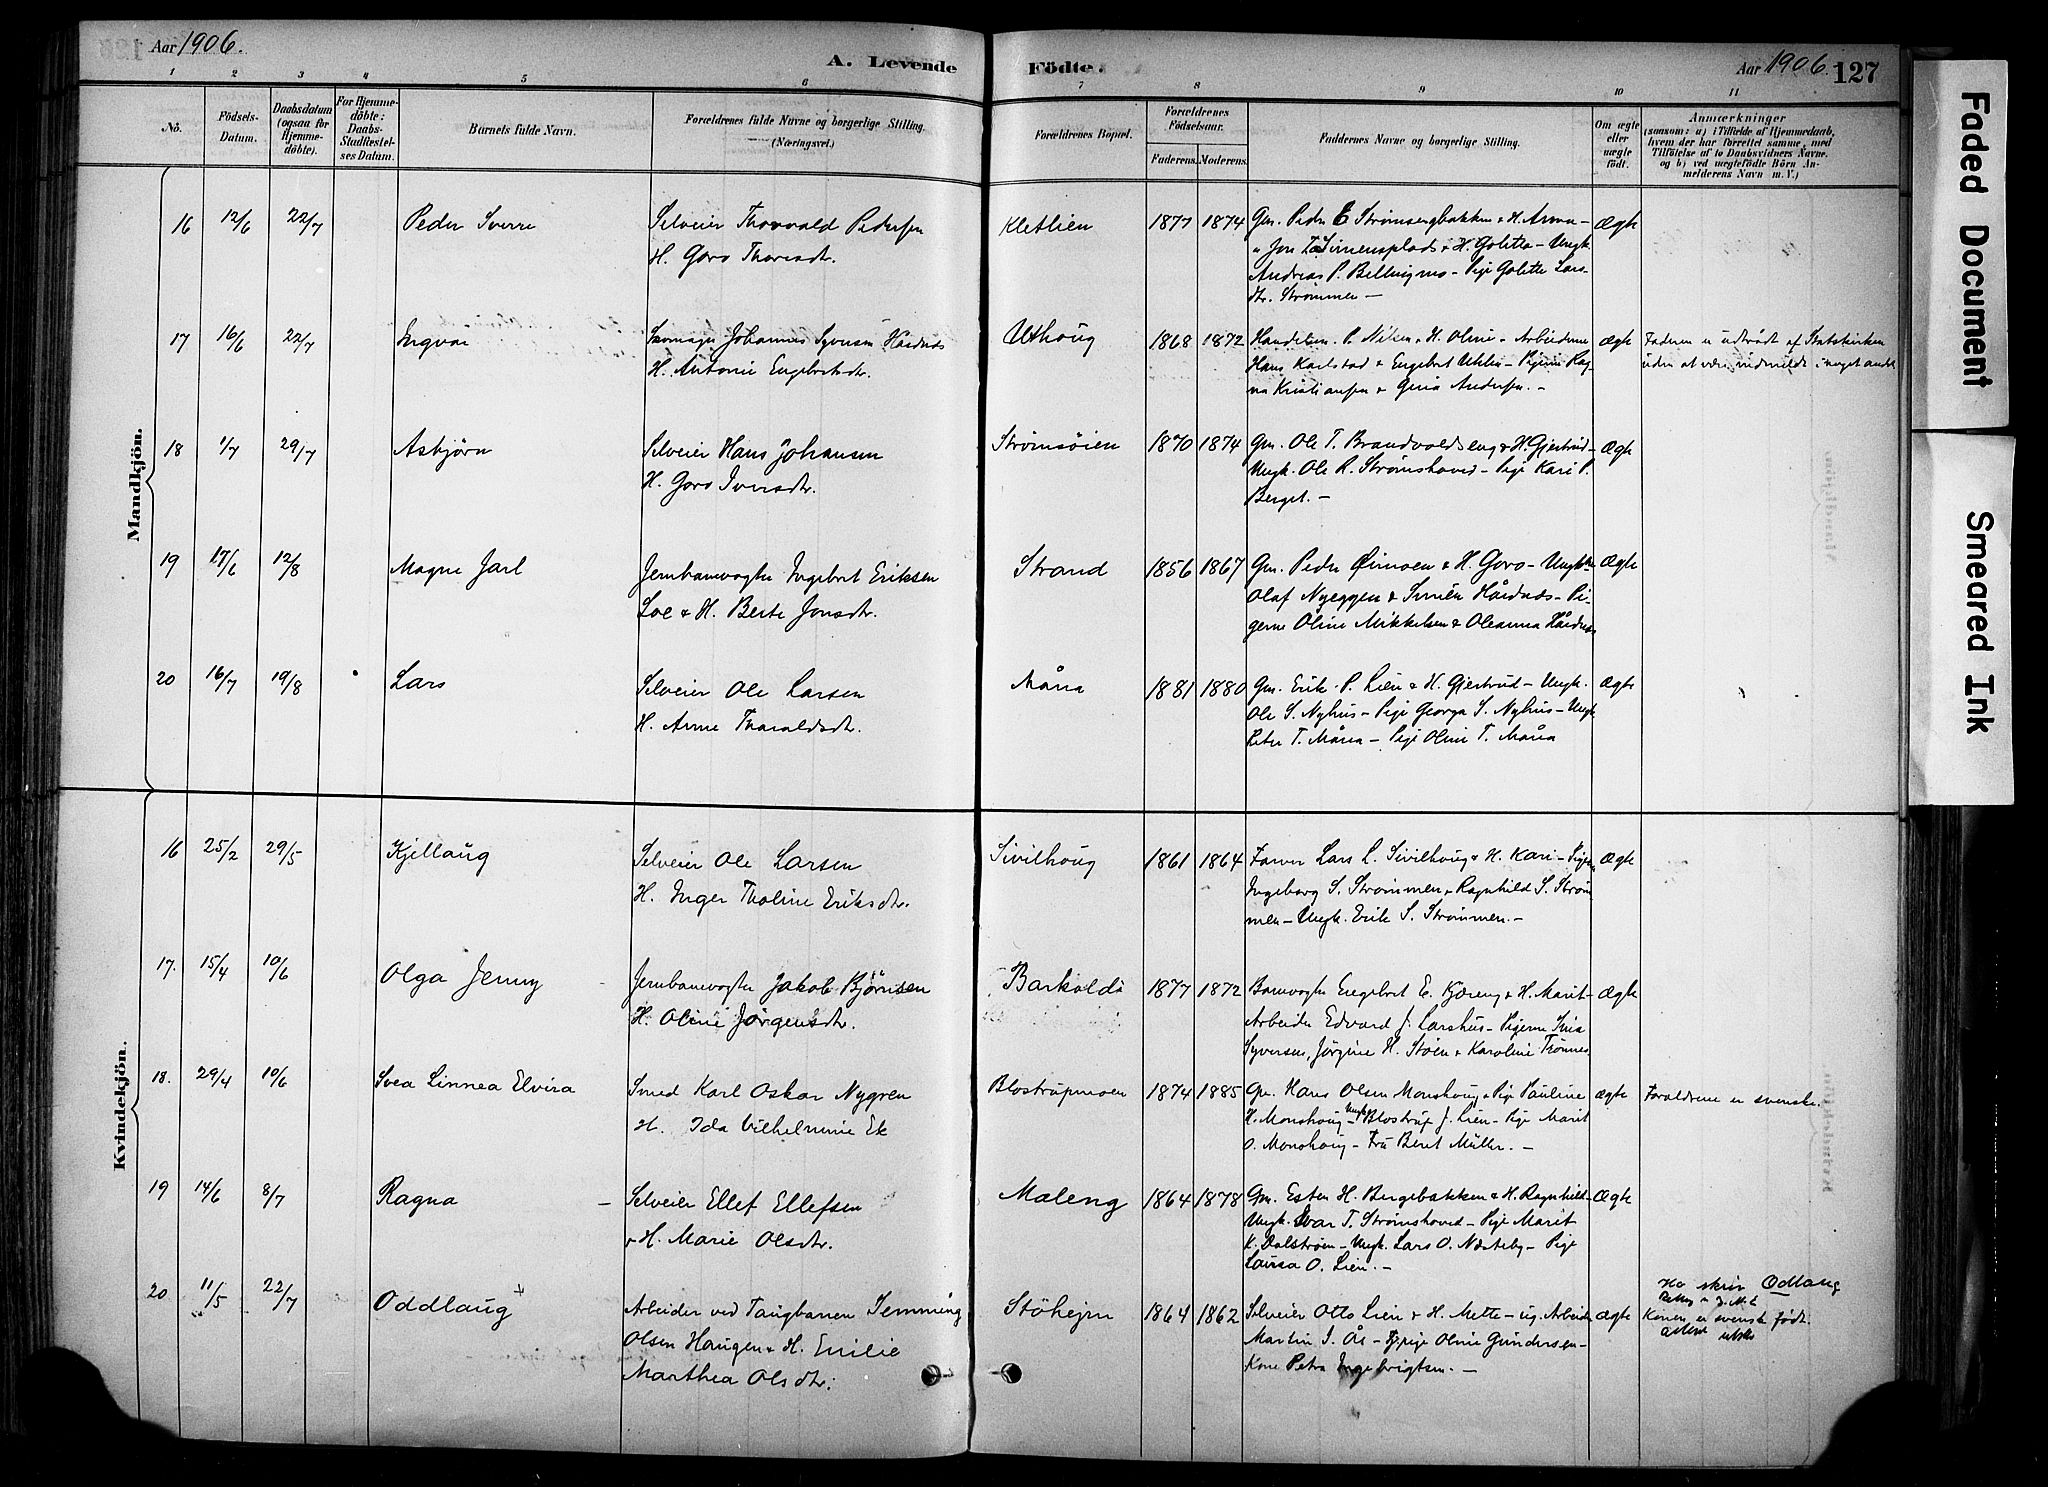 Aar 1906.
A. Levende Födte.
Aar 1906. 127
1 2 3 4 5 6 7 8 9 10 11
No.
Födsels-Datum.
Daabsdatum (ogsaa for Hjemme-döbte).
For Hjemme-döbte: Daabs-Stadfæstel-ses Datum.
Barnets fulde Navn.
Forældrenes fulde Navne og borgerlige Stilling. (Næringsvei.)
Forældrenes Bopæl.
Forældrenes Födselsaar.
Faderens. Moderens.
Faddernes Navne og borgerlige Stilling.
Om ægte eller uægte födt.
Anmærkninger
(saasom: a) i Tilfælde af Hjemmedaab,
hvem der har forrettet samme, med
Tilföielse af to Daabsvidners Navne.
og b) ved uægtefödte Börn An-
melderens Navn m. V.)
Mandkjön.
16 12/6 22/7 Peder Sverre
Selveier Thorvald Pedersen
H. Goro Thoresdtr.
Kletlien 1877 1874
Gm. Peder E Strømsengbakken & H. Anna -
" Jon Simensplads & H. Golette - Ungk.
Andreas P. Bellingmo - Pige Golette Lars-
dtr. Strømmen -
Ægte
17 16/6 22/7 Ingvar
Johannes Syversen Haarnæs
H. Antonie Engebretsdtr.
Uthoug 1868 1872
Handelsm. P. Nilsen & H. Oline - Arbeiderne
Hans Karlstad & Engebret Uhlen - Pigerne Rag-
na Kristiansen & Gina Andersen. -
ægte
Faderen er udtrådt af Statskirken
uden at være indmeldt i noget andet
18 1/7 29/7 Asbjørn
Selveier Hans Johansen
H. Goro Iversdtr.
Strømsøien 1870 1874
Gm. Ole T. Brandvoldseng & H. Gjertrud -
Ungk. Ole R. Strømshoved - Pige Kari P.
Berget. -
Ægte
19 17/6 12/8 Magne Jarl
Jernbanevogter Ingebret Eriksen
Loe & H. Berte Jonsdtr.
Strand 1856 1867
Gm. Peder Øimoen & H. Goro - Ungk.
Olaf Nyeggen & Simen Hårdnæs - Pi-
gerne Oline Mikkelsen & Oleanna Hårdnæs
Ægte
20 16/7 19/8 Lars
Selveier Ole Larsen
H. Anne Tharaldsdtr.
Måna 1881 1880
Gm. Erik P. Lien & H. Gjertrud - Ungk.
Ole S. Nyhus - Pige Georga S. Nyhus - Ungk.
Peter T. Måna - Pige Oline T. Måna
Ægte
Kvindekjön.
16 25/2 29/5 Kjellaug
Selveier Ole Larsen
H. Inger Tholine Eriksdtr.
Sivilhoug 1861 1864
Farver Lars L. Sivilhoug & H. Kari - Pigerne
Ingeborg S. Strømmen & Ragnhild S. Strøm-
men - Ungk. Erik S. Strømmen. -
Ægte
17. 15/4 10/6 Olga Jenny
Jernbanevogter Jakob Bjørnsen
H. Oline Jørgensdtr.
Barkald 1877 1872
Banevogter Engebret E. Kjæreng & H. Marit -
Arbeider Edvard J. Larshus - Pigerne Inia
Syversen, Jørgine H. Støen & Karoline Trønnes
Ægte
18. 29/4 10/6 Svea Linnea Elvira
Smed Karl Oskar Nygren
H. Ida Vilhelmine Ek
Blostrupmoen 1874 1885
Gm. Hans Olsen Monshoug & Pige Pauline
H. Monshoug - Ungk. Blostrup J. Lien - Pige Marit
O. Monshoug - Fru Beret Müller. -
ægte
Forældrene er svenske.
19 14/6 8/7 Ragna -
Selveier Ellef Ellefsen
& H. Marie Olsdtr.
Maleng 1864 1878
Gm. Esten H. Bergebakken & H. Ragnhild -
Ungk. Ivar T. Strømshoved - Pige Marit
K. Dalstrøen - Ungk. Lars O. Næsteby - Pige
Laura O. Lien. -
Ægte
20 11/5 22/7 Oddlaug +
Arbeider ved Taugbanen Jemming
Olsen Haugen & H. Emilie
Marthea Olsdtr.
Støhejm 1864 1862
Selveier Otto Lien & H. Mette - ug. Arbeider
Martin J. Ås - pige Oline Gundersen -
Kone Petra Ingebrigtsen. -
ægte
skriv Odlaug
Konen er svensk født.
Faded Document
Smeared Ink